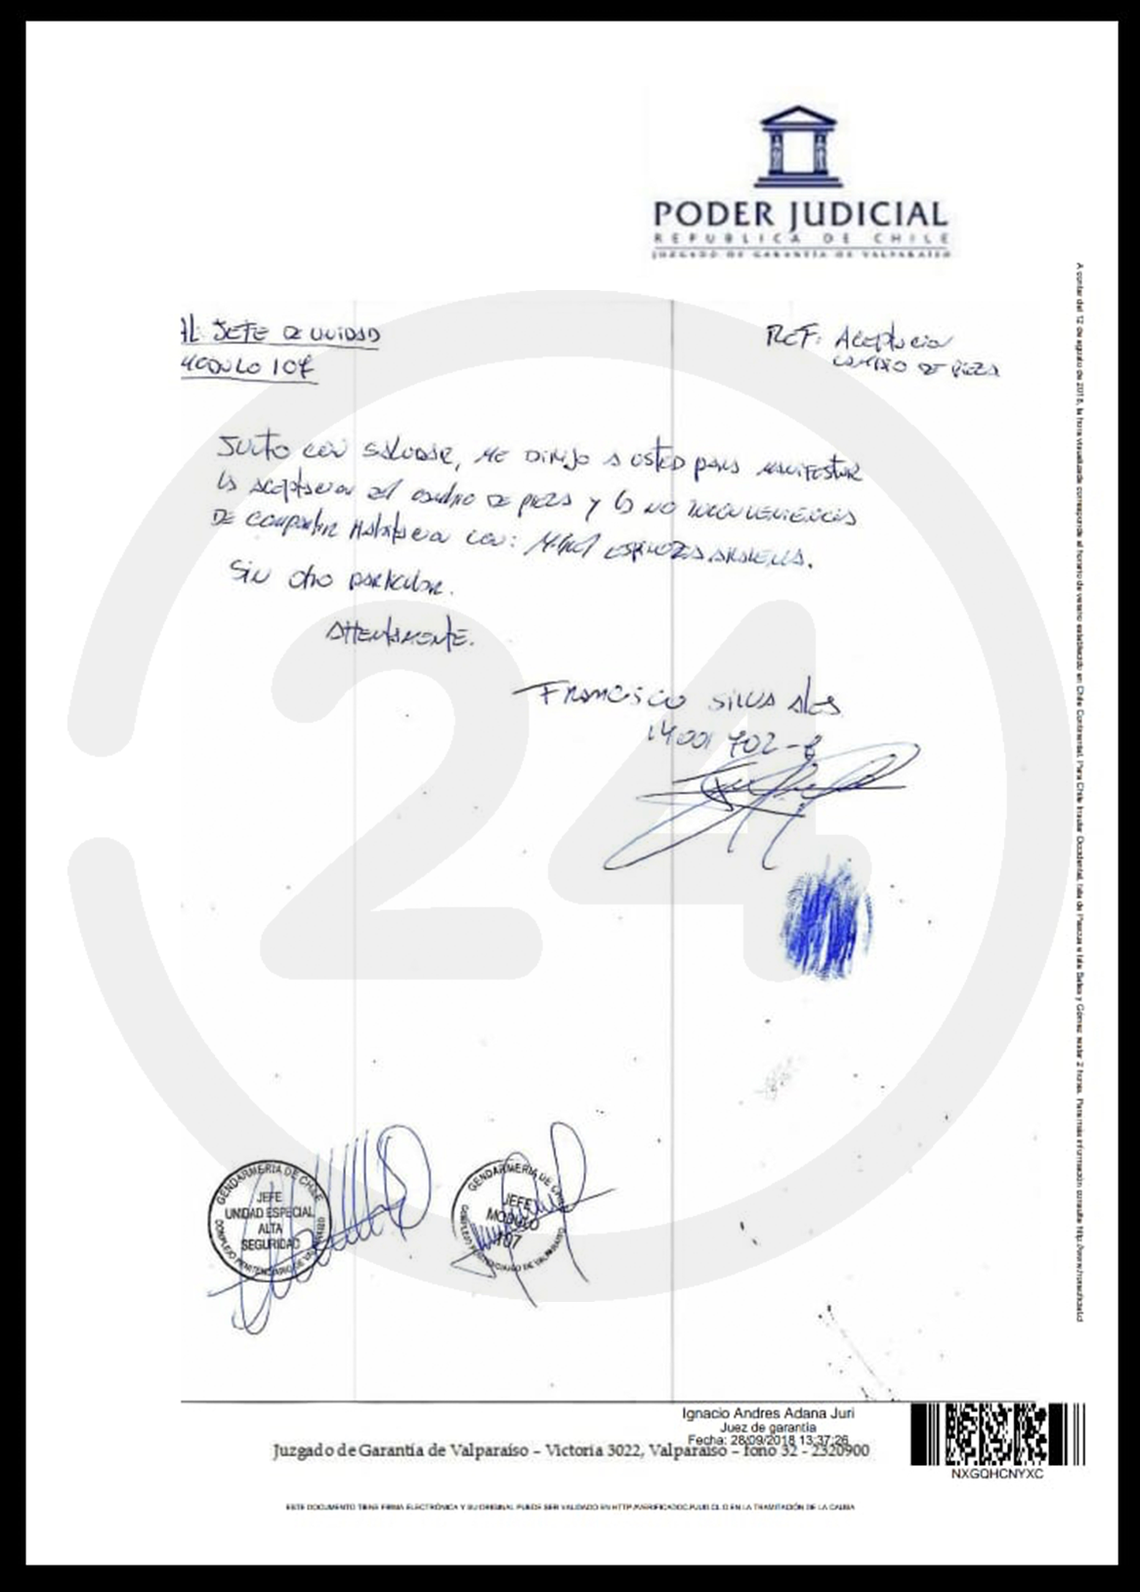 PODER JUDICIAL
REPUBLICA DE CHILE
JUZGADO DE GARANTÍA DE VALPARAÍSO
AL: JEFE DE UNIDAD
MODULO 107
REF: Aceptacion
CAMBIO DE PIEZA
JUNTO CON SALUDAR, ME DIRIJO A USTED para MANIFESTAR
la aceptacion del cambio DE PIEZA y la NO INCONVENIENCIA
DE compartir Habitacion con: ESPINOZA ARAVENA.
SIN otro particular.
ATTENTAMENTE.
FRANCISCO SILVA
14001702-
24
GENDARMERIA DE CHILE
JEFE
UNIDAD ESPECIAL
ALTA
SEGURIDAD
COMPLEJO PENITENCIARIO DE VALPARAISO
GENDARMERIA DE
JEFE
MODULO
107
COMPLEJO PENITENCIARIO DE VALPARAISO
Ignacio Andres Adana Juri
Juez de garantía
Fecha: 28/09/2018 13:37:26
Juzgado de Garantía de Valparaíso – Victoria 3022, Valparaíso – fono 32 - 2320900
NXGQHCNYXC
ESTE DOCUMENTO TIENE FIRMA ELECTRÓNICA Y SU ORIGINAL PUEDE SER VALIDADO EN HTTP://VERIFICADOC.PJUD.CL O EN LA TRAMITACIÓN DE LA CAUSA
A contar del 12 de agosto de 2018, la hora visualizada corresponde al horario de verano establecido en Chile Continental. Para Chile Insular Occidental, Isla de Pascua e Isla Salas y Gómez restar 2 horas. Para más información consulte http://www.horaoficial.cl